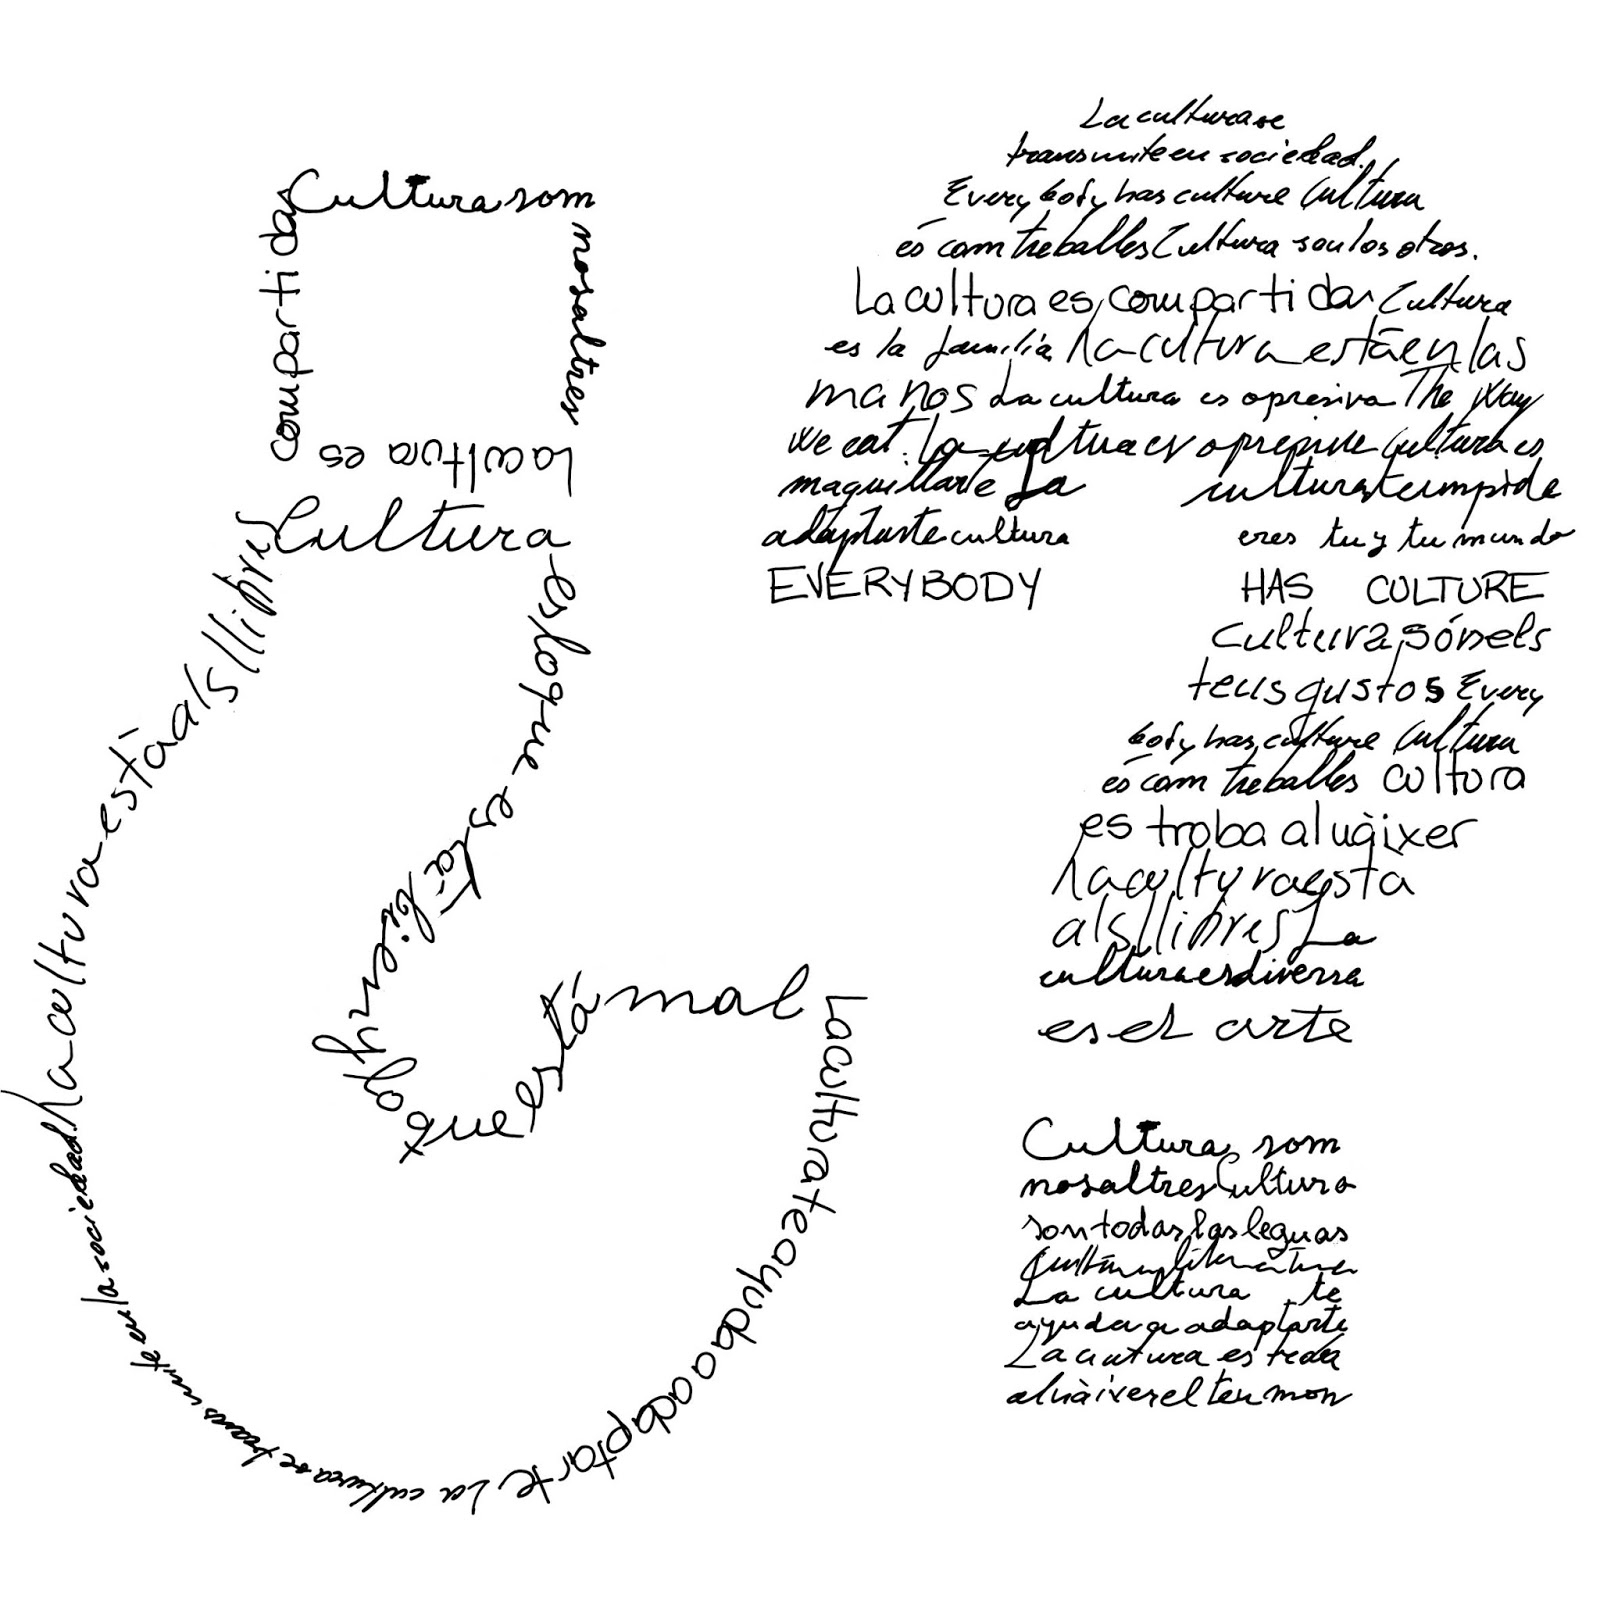 Cultura som
nosaltres
La cultura es
compartidas
Cultura
es lo que está bien y lo
que está mal
La cultura te ayuda a adaptarte
La cultura se transmite en la sociedad.
La cultura està als llibres
La cultura se
transmite en sociedad.
Everybody has culture Cultura
és com treballes Cultura son los otros.
La cultura es compartidas Cultura
es la familia La cultura está en las
manos La cultura es opresiva The way
We eat. La cultura es opresive Cultura es
maquillarte La cultura te impide
adaptarte cultura eres tu y tu mundo
EVERYBODY HAS CULTURE
Cultura són els
teus gustos Every
body has culture Cultura
és com treballes cultura
es troba al uàixer
La cultura esta
als llibres La
cultura es diversa
es el arte
Cultura som
nosaltres Cultura
son todas las leguas
Cultura literatura
La cultura te
ayuda a adaptarte
La cutura es teda
al uàixer el teu mon